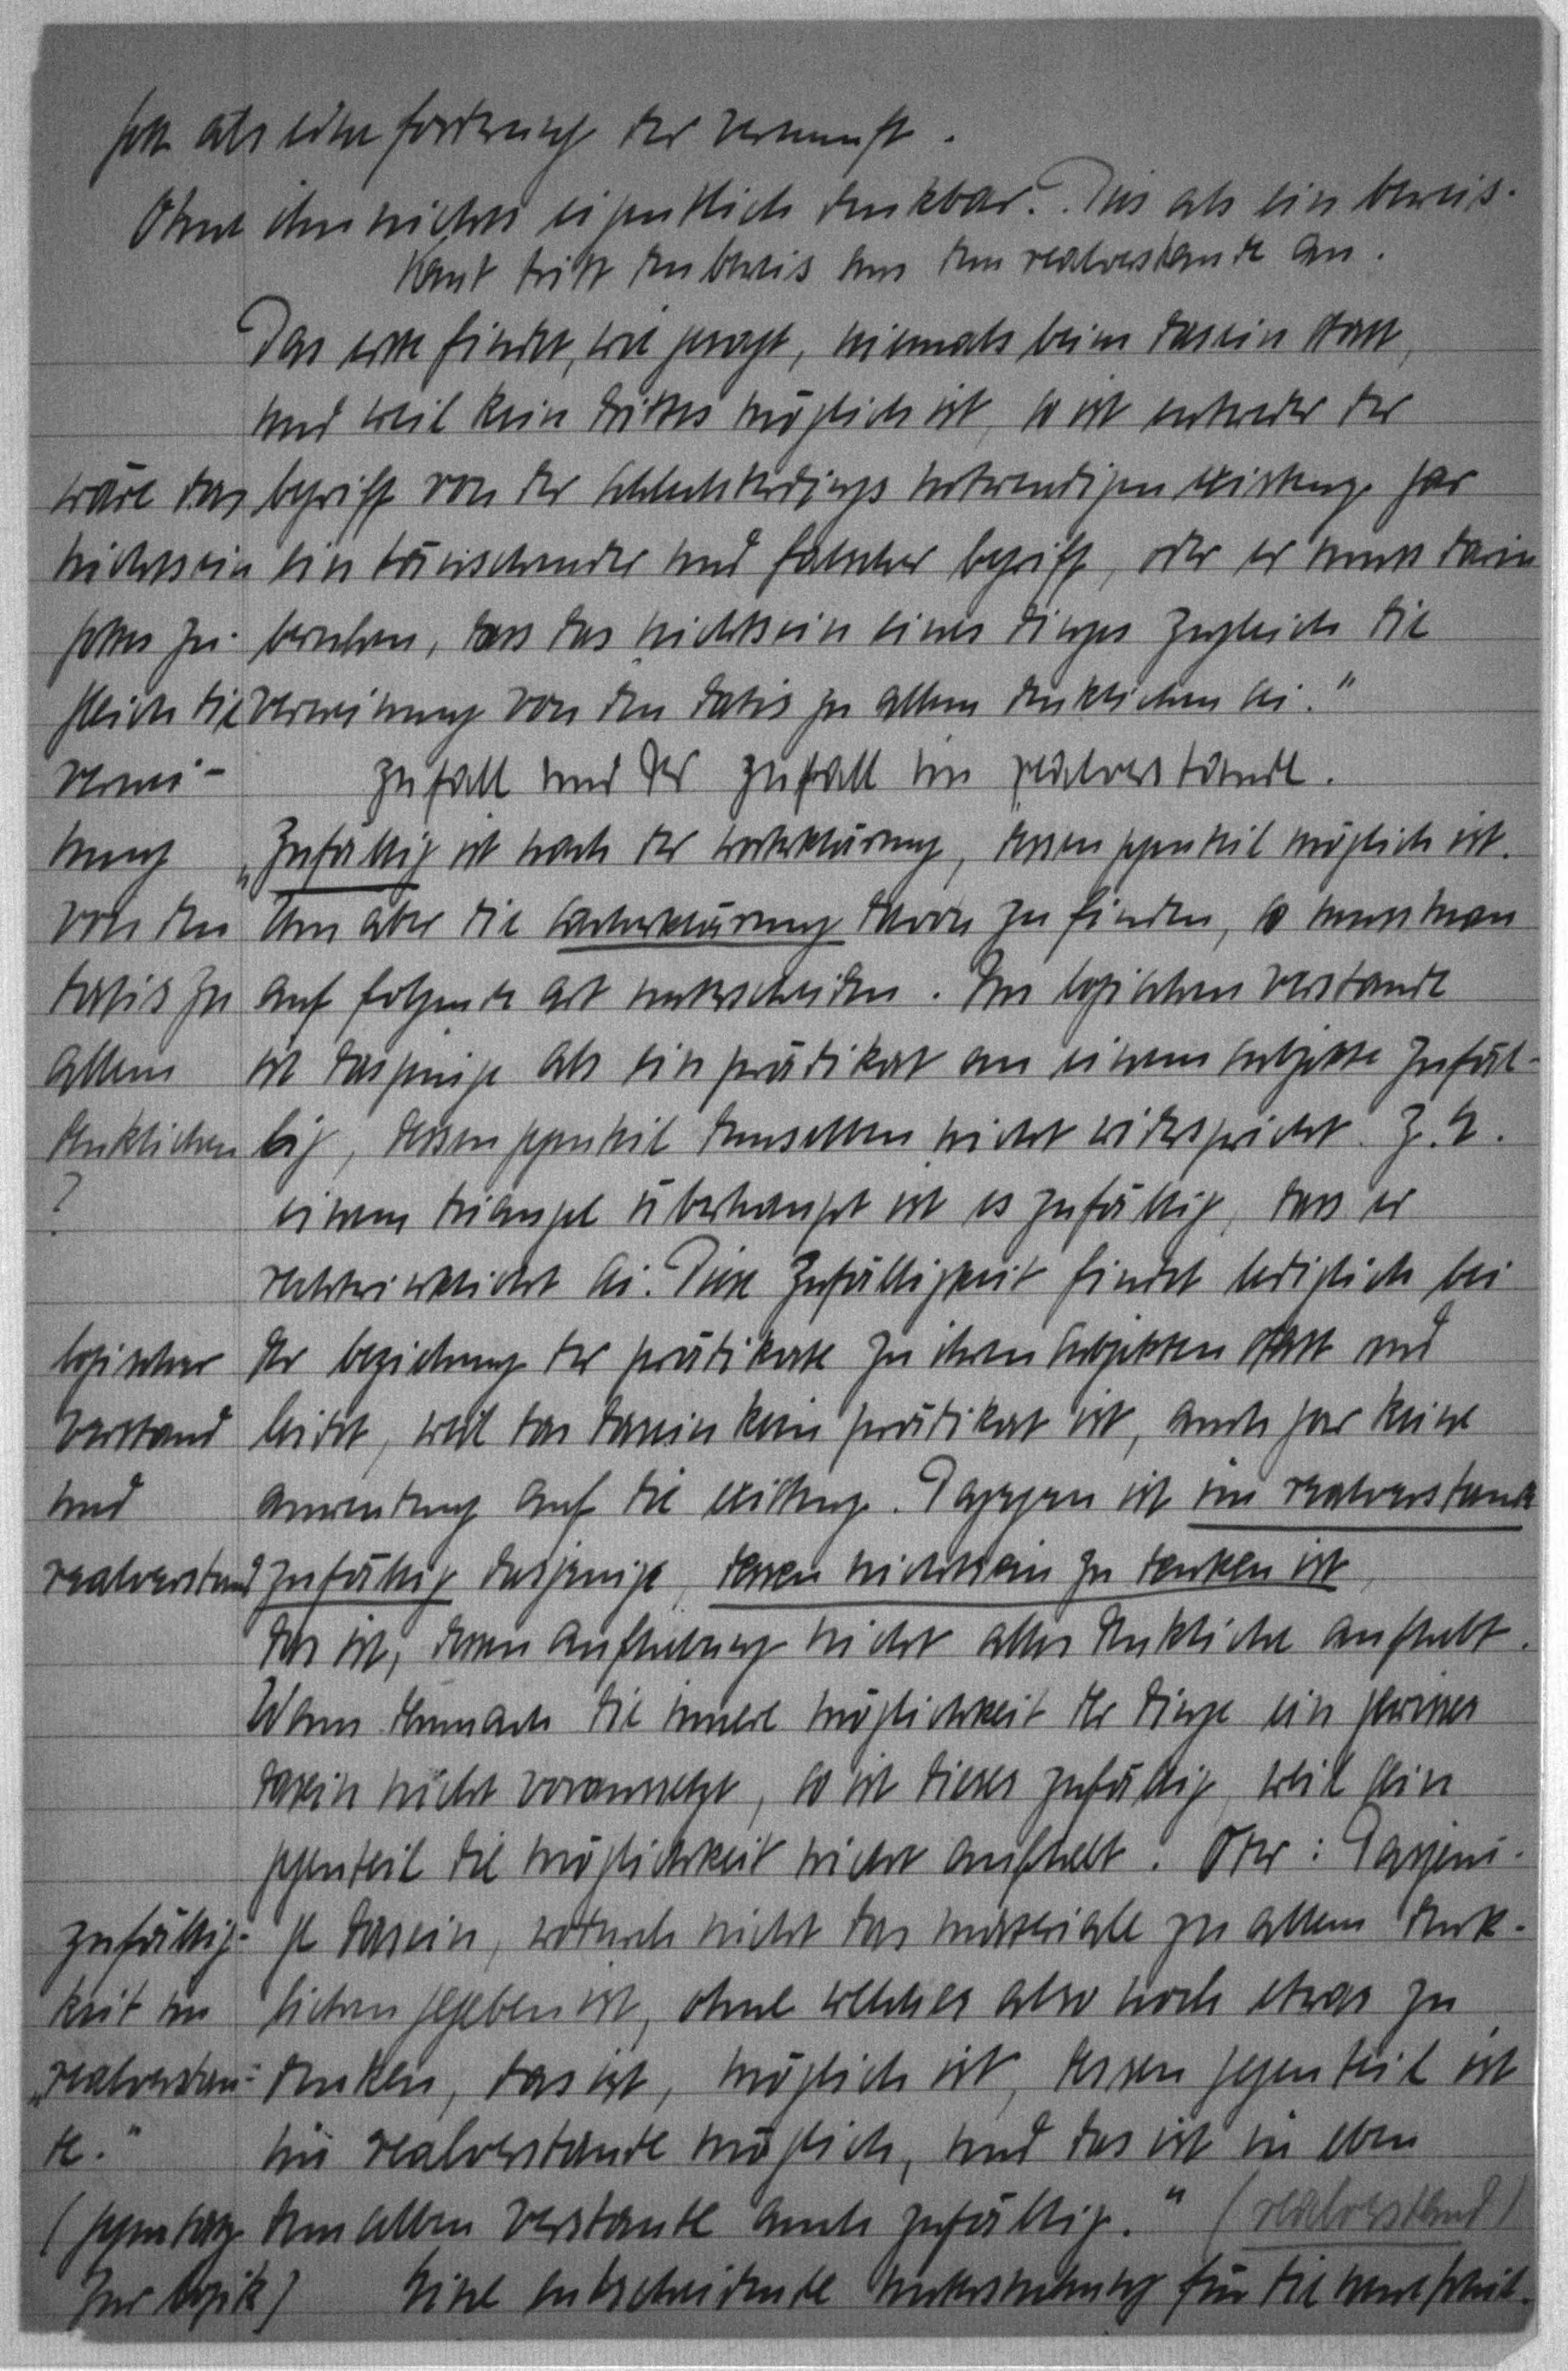 gott als eine forderung der vernunft.
Ohne ihn nichts eigentlich denkbar. Dies als ein beweis.
Kant tritt den beweis aus dem realverstande an.
Das erste findet, wie gesagt, niemals beim dasein statt,
und weil kein drittes möglich ist, so ist entweder der
begriff von der schlechterdings notwendigen existenz gar
ein täuschender und falscher begriff, oder er muss darin
beruhen, dass das nichtsein eines dinges zugleich die
verneinung von den datis zu allem denklichen sei."
wäre das
nichtsein
gottes zu-
gleich die
vernei-
nung
von den
datis zu
allem
denklichen
?
zufall und der zufall im realverstande.
„Zufällig ist nach der worterklärung, dessen gegenteil möglich ist.
Um aber die sacherklärung davon zu finden, so muss man
auf folgende art unterscheiden. Im logischen verstande
ist dasjenige als ein prädikat an einem subjekte zufäl-
lig, dessen gegenteil demselben nicht widerspricht. Z.E.
einem triangel überhaupt ist es zufällig, dass er
rechtwinklicht sei. Diese Zufälligkeit findet lediglich bei
der beziehung der prädikate zu ihren subjekten statt und
leidet, weil das dasein kein prädikat ist, auch gar keine
anwendung auf die existenz. Dagegen ist im realverstande
zufällig dasjenige, dessen nichtsein zu denken ist,
das ist, dessen aufhebung nicht alles denkliche aufhebt.
logischer
verstand
und
realverstand
Wenn demnach die innere möglichkeit der dinge ein gewisses
dasein nicht voraussetzt, so ist dieses zufällig, weil sein
gegenteil die möglichkeit nicht aufhebt. Oder: Dasjeni-
ge dasein, wodurch nicht das materiale zu allem denk-
lichen gegeben ist, ohne welches also noch etwas zu
denken, das ist, möglich ist, dessen gegenteil ist
im realverstande möglich, und das ist in eben
demselben verstande auch zufällig." (realverstand)
zufällig-
keit im
„realverstan-
de."
(gegensatz
zur logik)
Eine entscheidende untersuchung für die